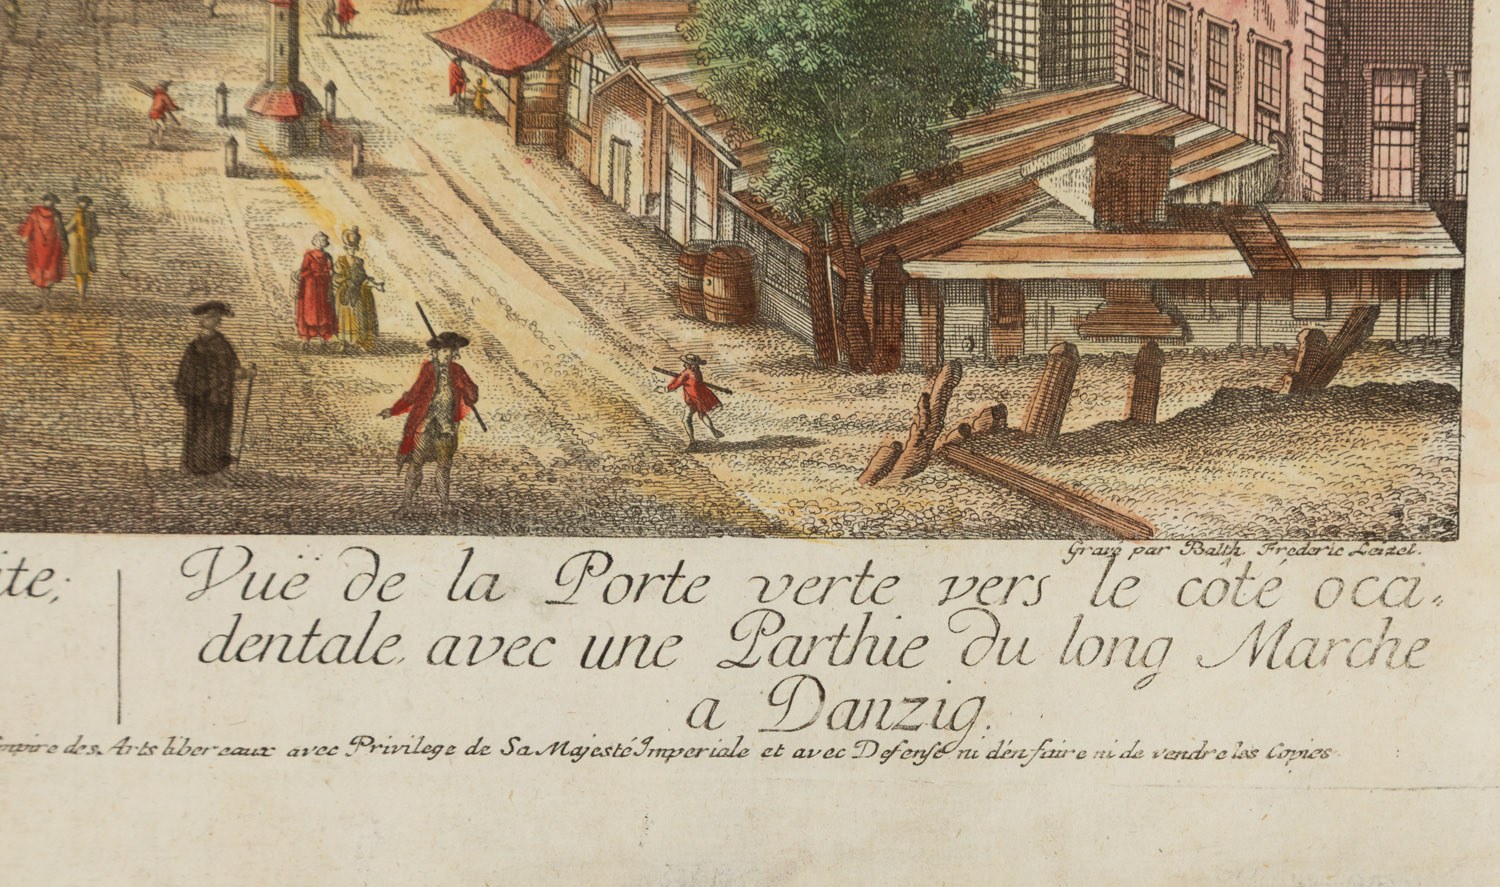 Gravé par Balth. Frederic Leizel.
ite;
Vuë de la Porte verte vers le côté occi„
dentale, avec une Parthie du long Marche
a Danzig.
Empire des Arts libereaux avec Privilege de Sa Majesté Imperiale et avec Defense ni d'en faire ni de vendre les Copies